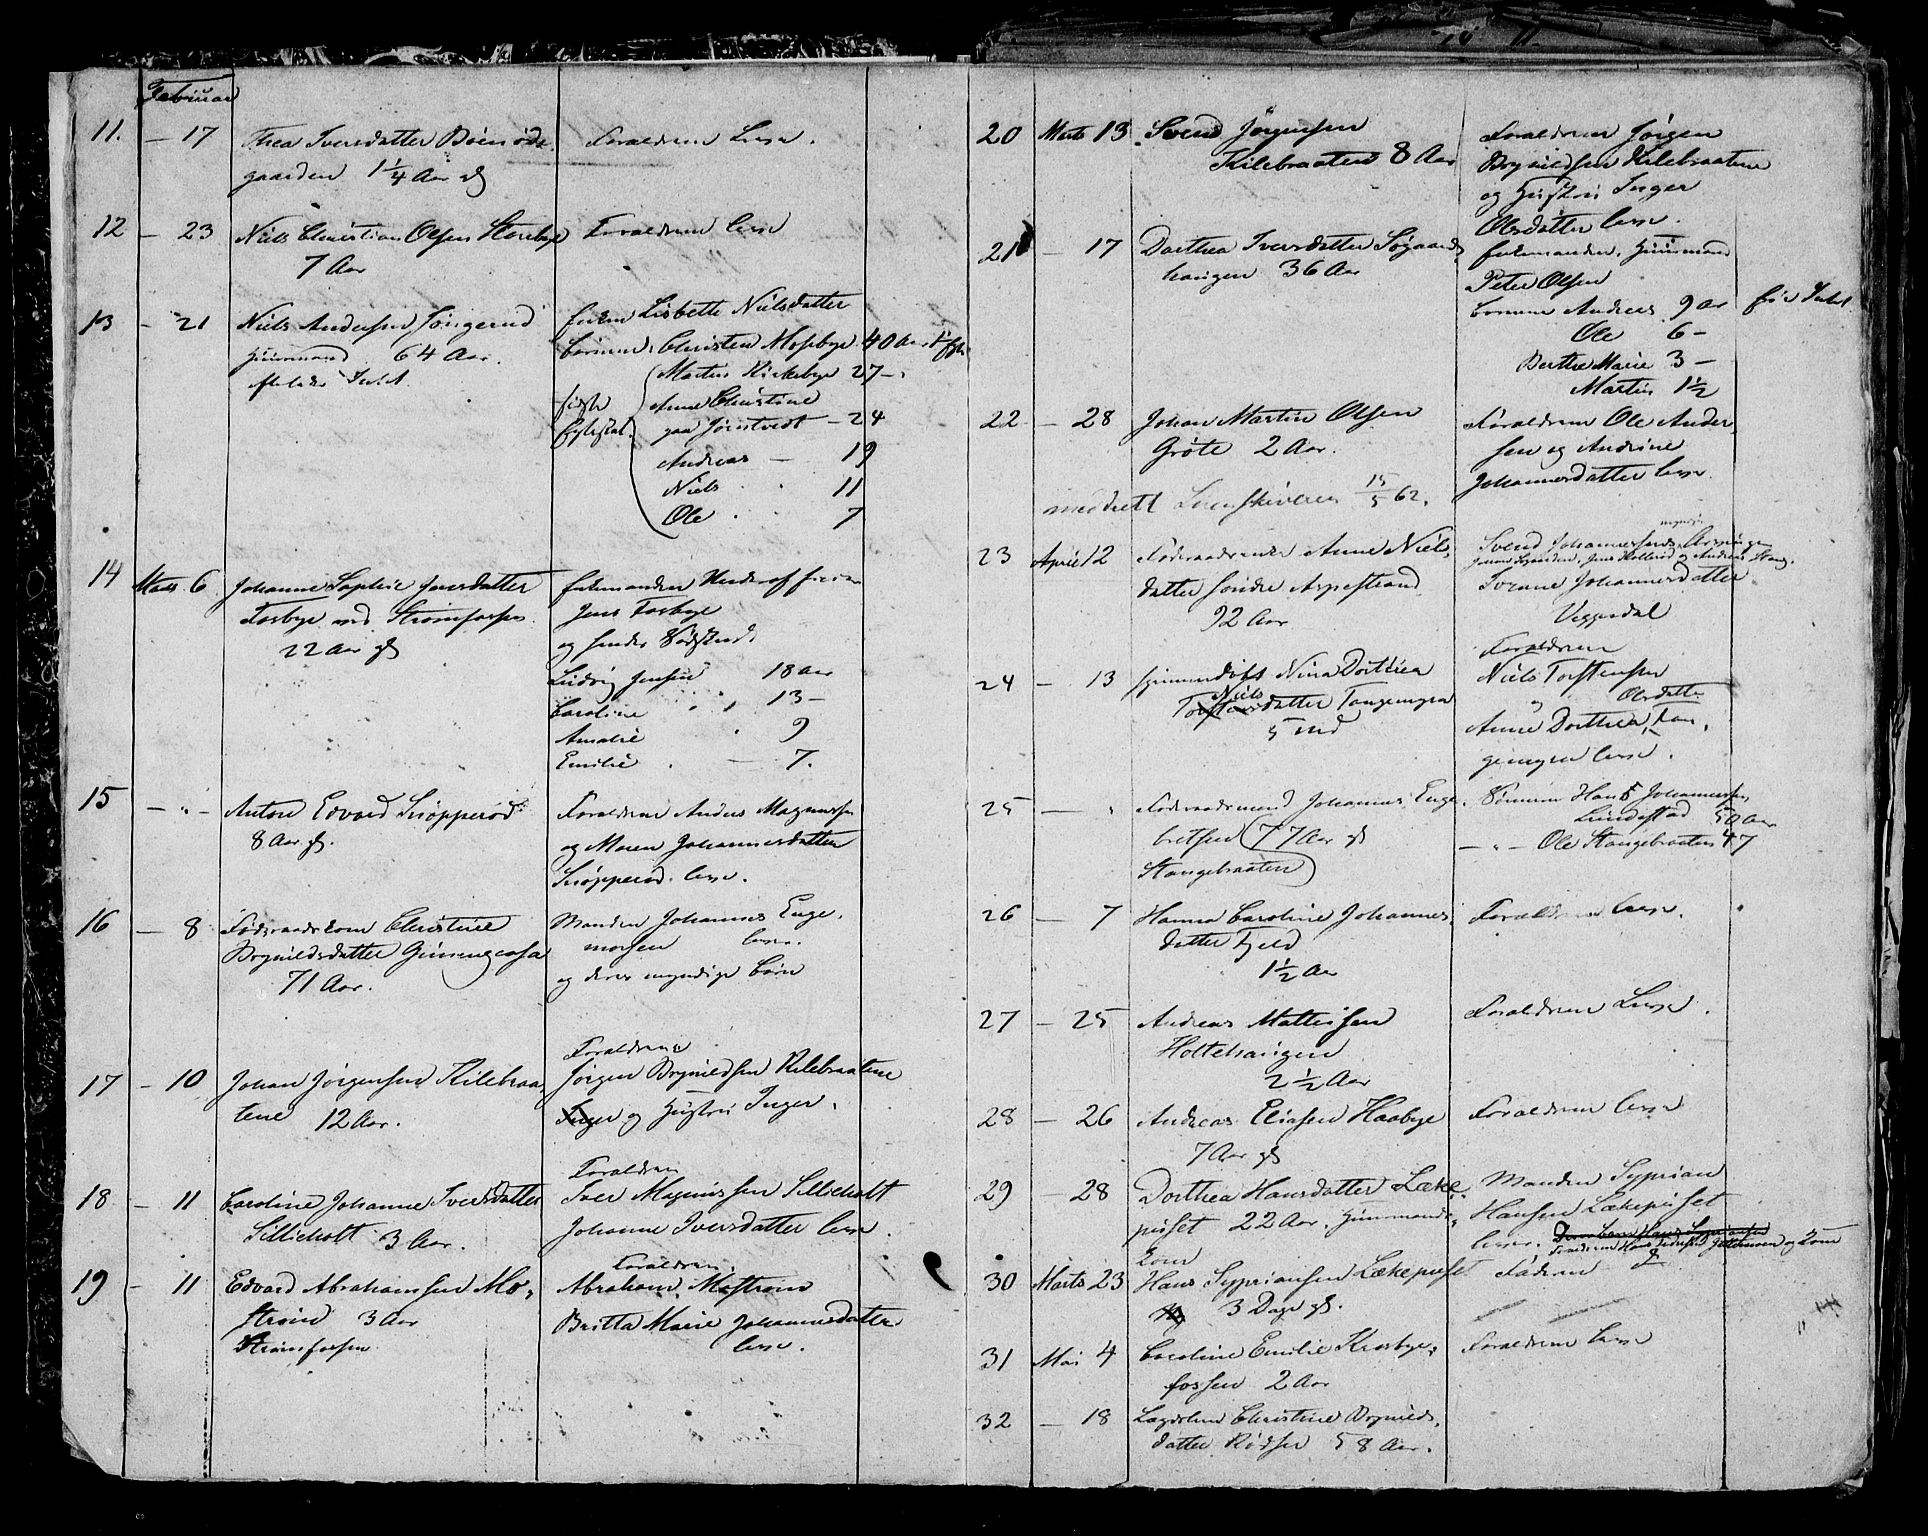 Februar
11. – 17 Thea Iversdatter
gaarden 1 1/4 Aar
Forældrene leve.
12 – 23 Niels Christian Olsen Storebye
7 Aar
Forældrene leve
13 – 21 Niels Andersen
Huusmand 64 Aar.
Enken Lisbette Nielsdatter
Børnene, Christen Mosebye 40 Aar
Martin Kirkebye 27 –
Anne Christine
paa – 24
Andreas – 19
Niels 11
Ole 7
14 Marts 6 Johanne Sophie Jensdatter
Torsbye ved Strømsfossen
22 Aar
Enkemanden
Jens Torsbye
og hendes Sødskende
Ludvig Jensen 18 Aar
Caroline 13 –
Amalie 9
Emilie 7.
15 – " – Anton Edvard Snopperød
8 Aar
Forældrene Anders Magnussen
og Maren Johannesdatter
Snopperød leve.
16 – 8 Føderaadskone Christine
Brynildsdatter
71 Aar.
Manden Johannes
leve.
og deres myndige Børn
17 – 10 Johan Jørgensen Kilebraa-
tene 12 Aar.
Forældrene
Jørgen Brynildsen Kilebraatene
Inger og Hustru Inger.
18 – 11 Caroline Johanne Iversdatter
Sillieholt 3 Aar.
Forældrene
Iver Magnussen Sillieholt
Johanne Iversdatter leve.
19 – 11 Edvard Abrahamsen Mo-
strøm 3 Aar
Strømsfossen
Forældrene
Abraham Mostrøm
Britta Marie Johannesdatter
leve.
20 Marts 13 Svend Jørgensen
Kilebraatene 8 Aar
Forældrene Jørgen
Brynildsen Kilebraatene
og Hustru Inger
Olesdatter leve.
21 – 17 Dorthea Iversdatter
haugen 36 Aar
Enkemanden, Huusmand
Peter Olsen
Børnene Andreas 9 Ar
Ole 6 –
Berthe Marie 3 –
Martin 1 1/2
22 – 28 Johan Martin Olsen
Grøte 2 Aar.
Forældrene Ole Ander-
sen og Andrine
Johannesdatter leve.
15/5 62.
23 April 12 Anne Niels-
datter Søndre Aspestrand
92 Aar
Svend Johannessen
Johannesdatter
Veggerdal
24 – 13 Nina Dorthea
Niels
datter Tangengra
5 md
Forældrene
Niels Torstensen
og Olesdatter
Anne Dorthea Tan-
leve.
25 – " Føderaadsmand Johannes Enge-
bretsen 77 Aar
Stangebraaten
Sønnerne Hans Johannessen
Lundestad 50 Aar
– " – Ole Stangebraaten 47
26 – 7 Hanna Caroline Johannes-
datter Fjeld
1 1/2 Aar
Forældrene leve.
27 – 25 Andreas Mathisen
Holtehaugen
2 1/2 Aar
Forældrene leve.
28 – 26 Andreas Eliasen Haabye
7 Aar
Forældrene leve
29 – 28 Dorthea Hansdatter Læke-
pisset 22 Aar, Huusmands-
Kone
Manden Syprian
Hansen Lækepisset
lever.
30 Marts 23 Hans Sypriansen Lækepisset
3 Dage
Faderen
31 Mai 4 Caroline Emilie Krosbye-
fossen 2 Aar
Forældrene leve
32 – 18 Lægdslem Christine Brynilds-
datter Rødsen 58 Aar.